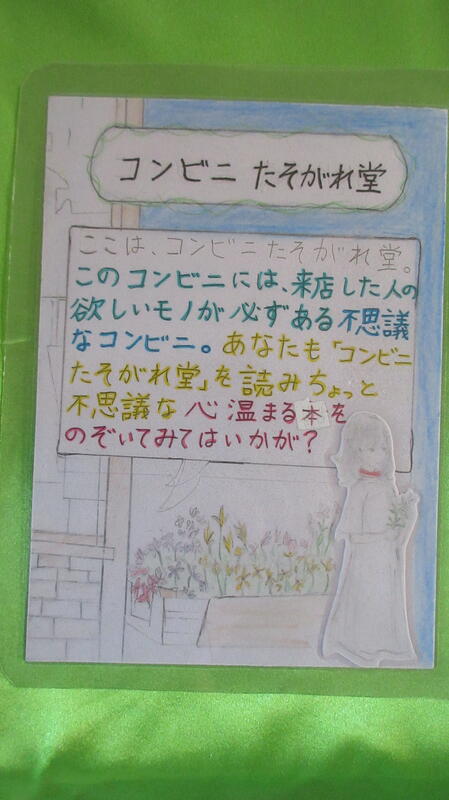 コンビニ たそがれ堂
ここは、コンビニたそがれ堂。
このコンビニには、来店した人の
欲しいモノが必ずある不思議
なコンビニ。あなたも「コンビニ
たそがれ堂」を読みちょっと
不思議な心温まる本を
のぞいてみてはいかが？